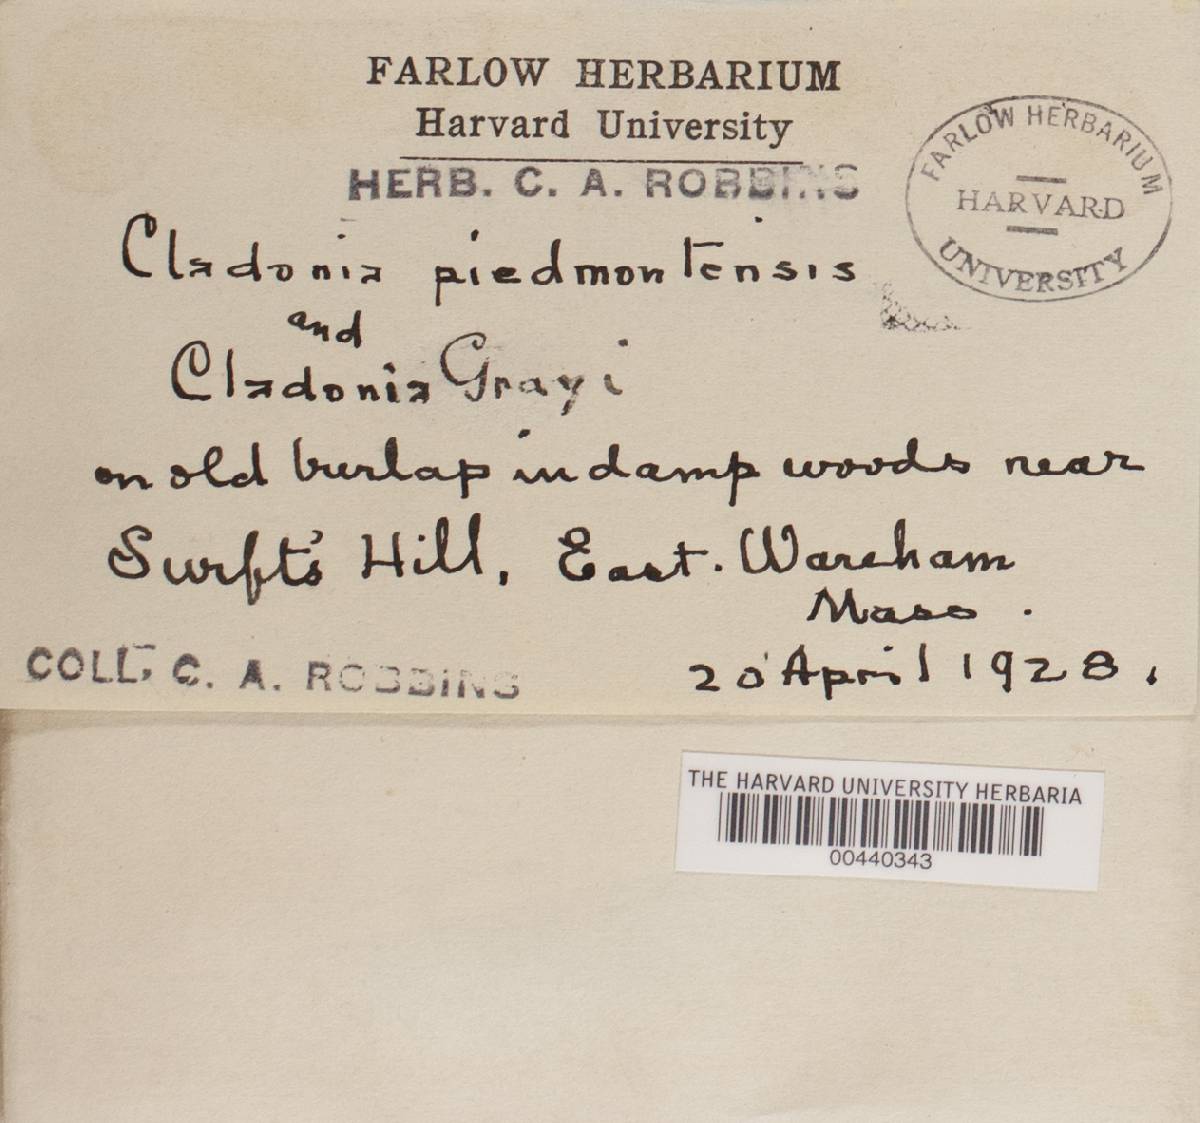 FARLOW HERBARIUM
Harvard University
HERB. C. A. ROBBINS
FARLOW HERBARIUM
HARVARD
UNIVERSITY
Cladonia piedmontensis
and
Cladonia Grayi
on old burlap in damp woods near
Swift's Hill, East. Wareham
Mass.
20 April 1928.
COLL. C. A. ROBBINS
THE HARVARD UNIVERSITY HERBARIA
00440343